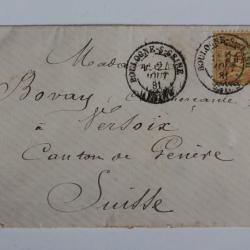 BOULOGNE-S-SEINE
AOUT
81
BOULOGNE-S-SEINE
Madame
Bovay Commerçante
à Versoix
Canton de Genève
Suisse